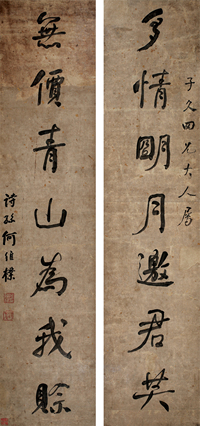 多情明月邀君共
子久四兄大人屬
無價青山為我賒
詩孫何維樸